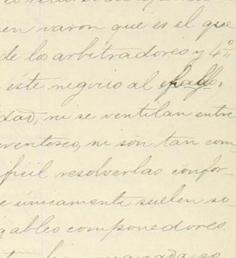 en varon que es el que
de los arbitradores y 4º
este negocio al
dad, ni se ventilan entre
ni son tan com
ficil resolverlas confor-
e únicamente suelen so
ables componedores.